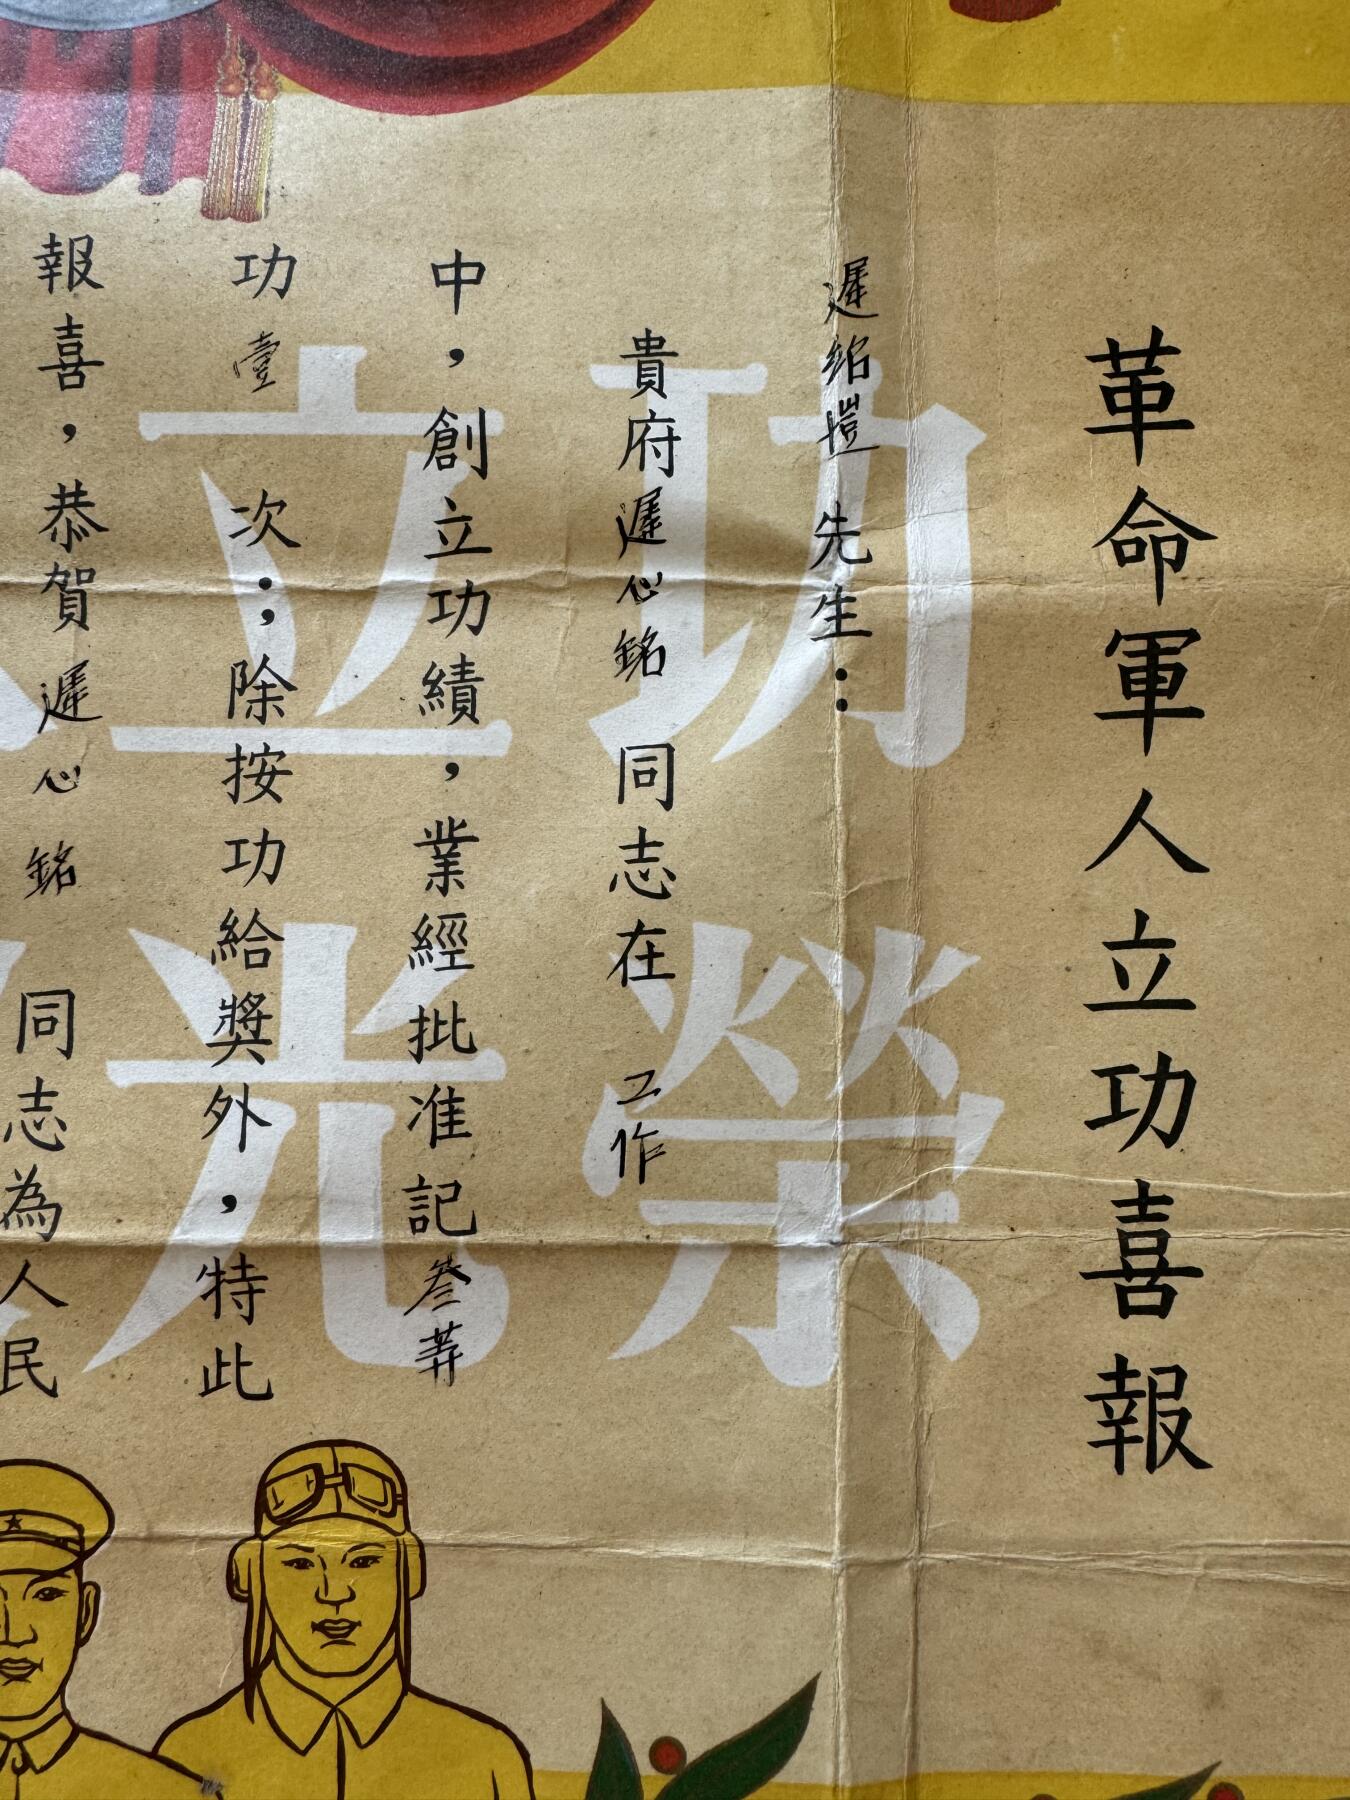 革命軍人立功喜報
遲銘塏先生：
貴府遲心銘同志在工作
中，創立功績，業經批准記叁等
功壹次；除按功給獎外，特此
報喜，恭賀遲心銘同志為人民
功立
榮光